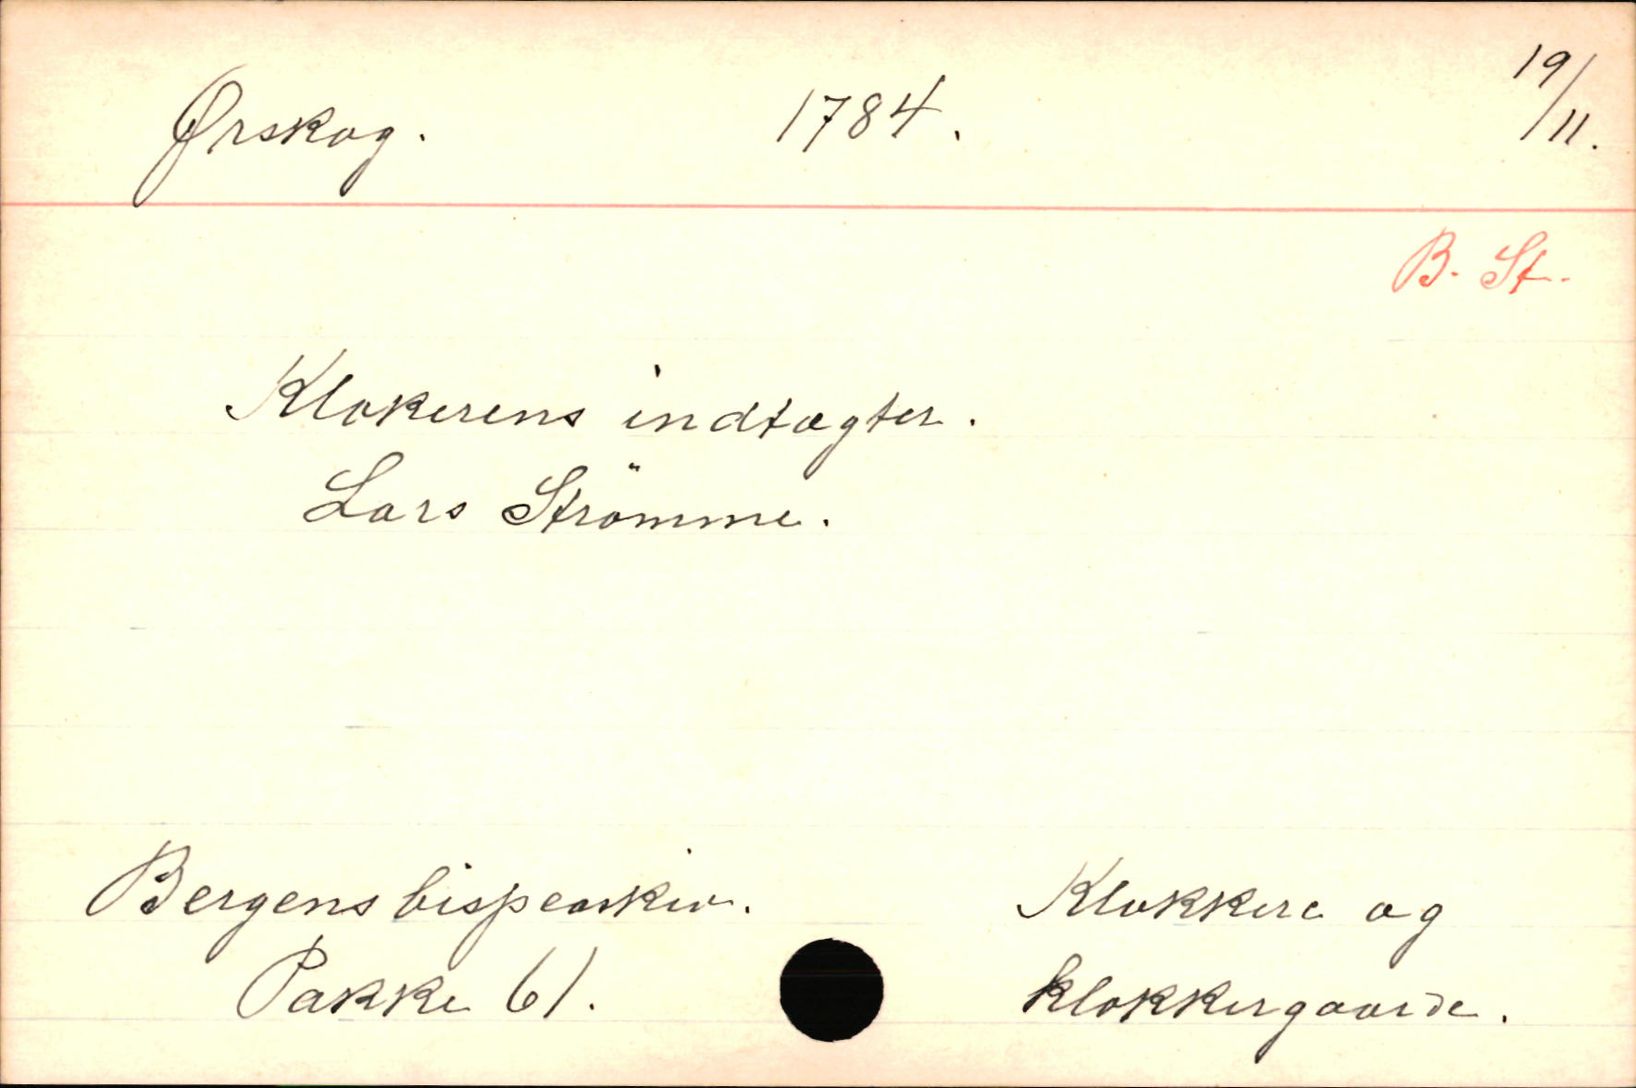 Ørskog. 1784. 19/11.
B. St.
Klokerens indtægter.
Lars Strömme.
Bergens bispearkiv. Klokkere og
Pakke 61. klokkergaarde.